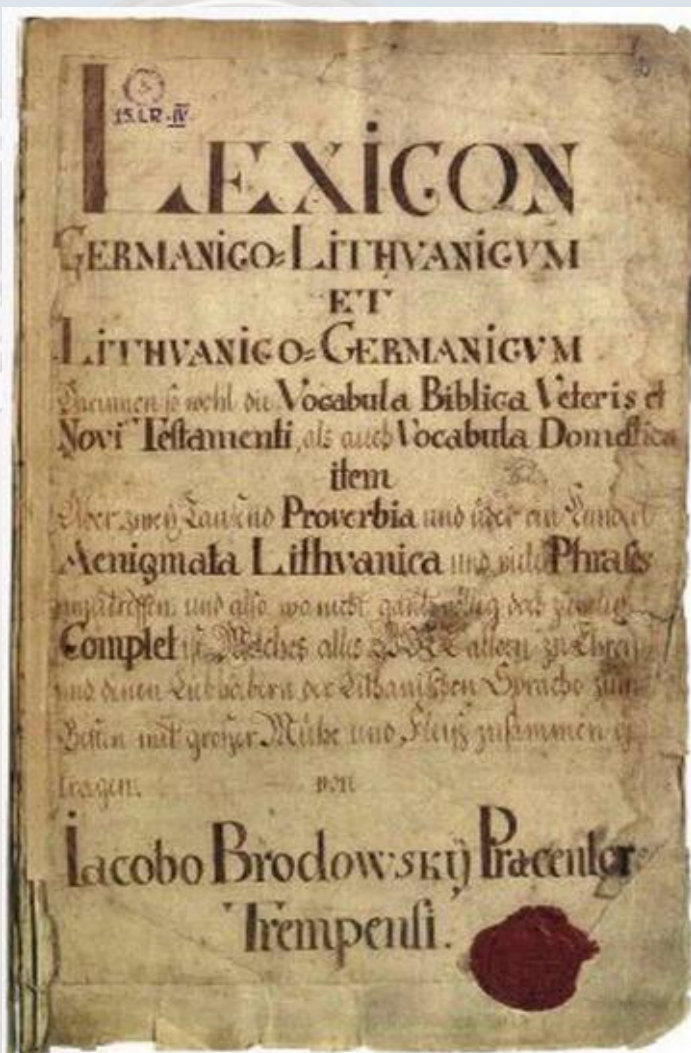 15.LR.IV
LEXICON
GERMANICO=LITHVANICVM
ET
LITHVANICO=GERMANICVM
Darinnen so wohl die Vocabula Biblica Veteris et
Novi Testamenti, als auch Vocabula Domestica
item
Uber zweÿ Tausend Proverbia und über ein
Aenigmata Lithvanica und viele Phrases
anzutreffen und also wo nicht doch
Complet ist Welches alles allein zu Ehren
und denen Liebhabern der Sprache zum
Besten mit großer Mühe und Fleiß zusammen
tragen. von
Iacobo Brodowskÿ Pracentor
Trempensi.